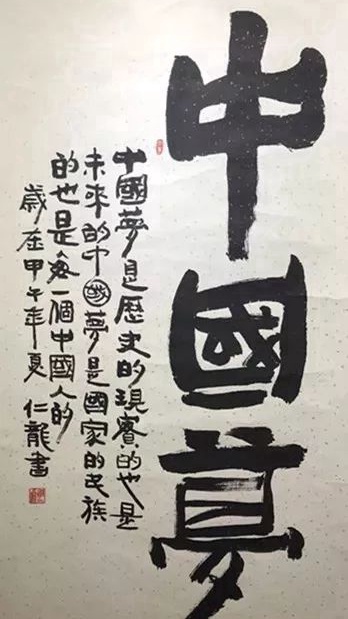 中國夢
中國夢是歷史的現實的也是
未來的中國夢是國家的民族
的也是每一個中國人的
歲在甲午年夏 仁龍書